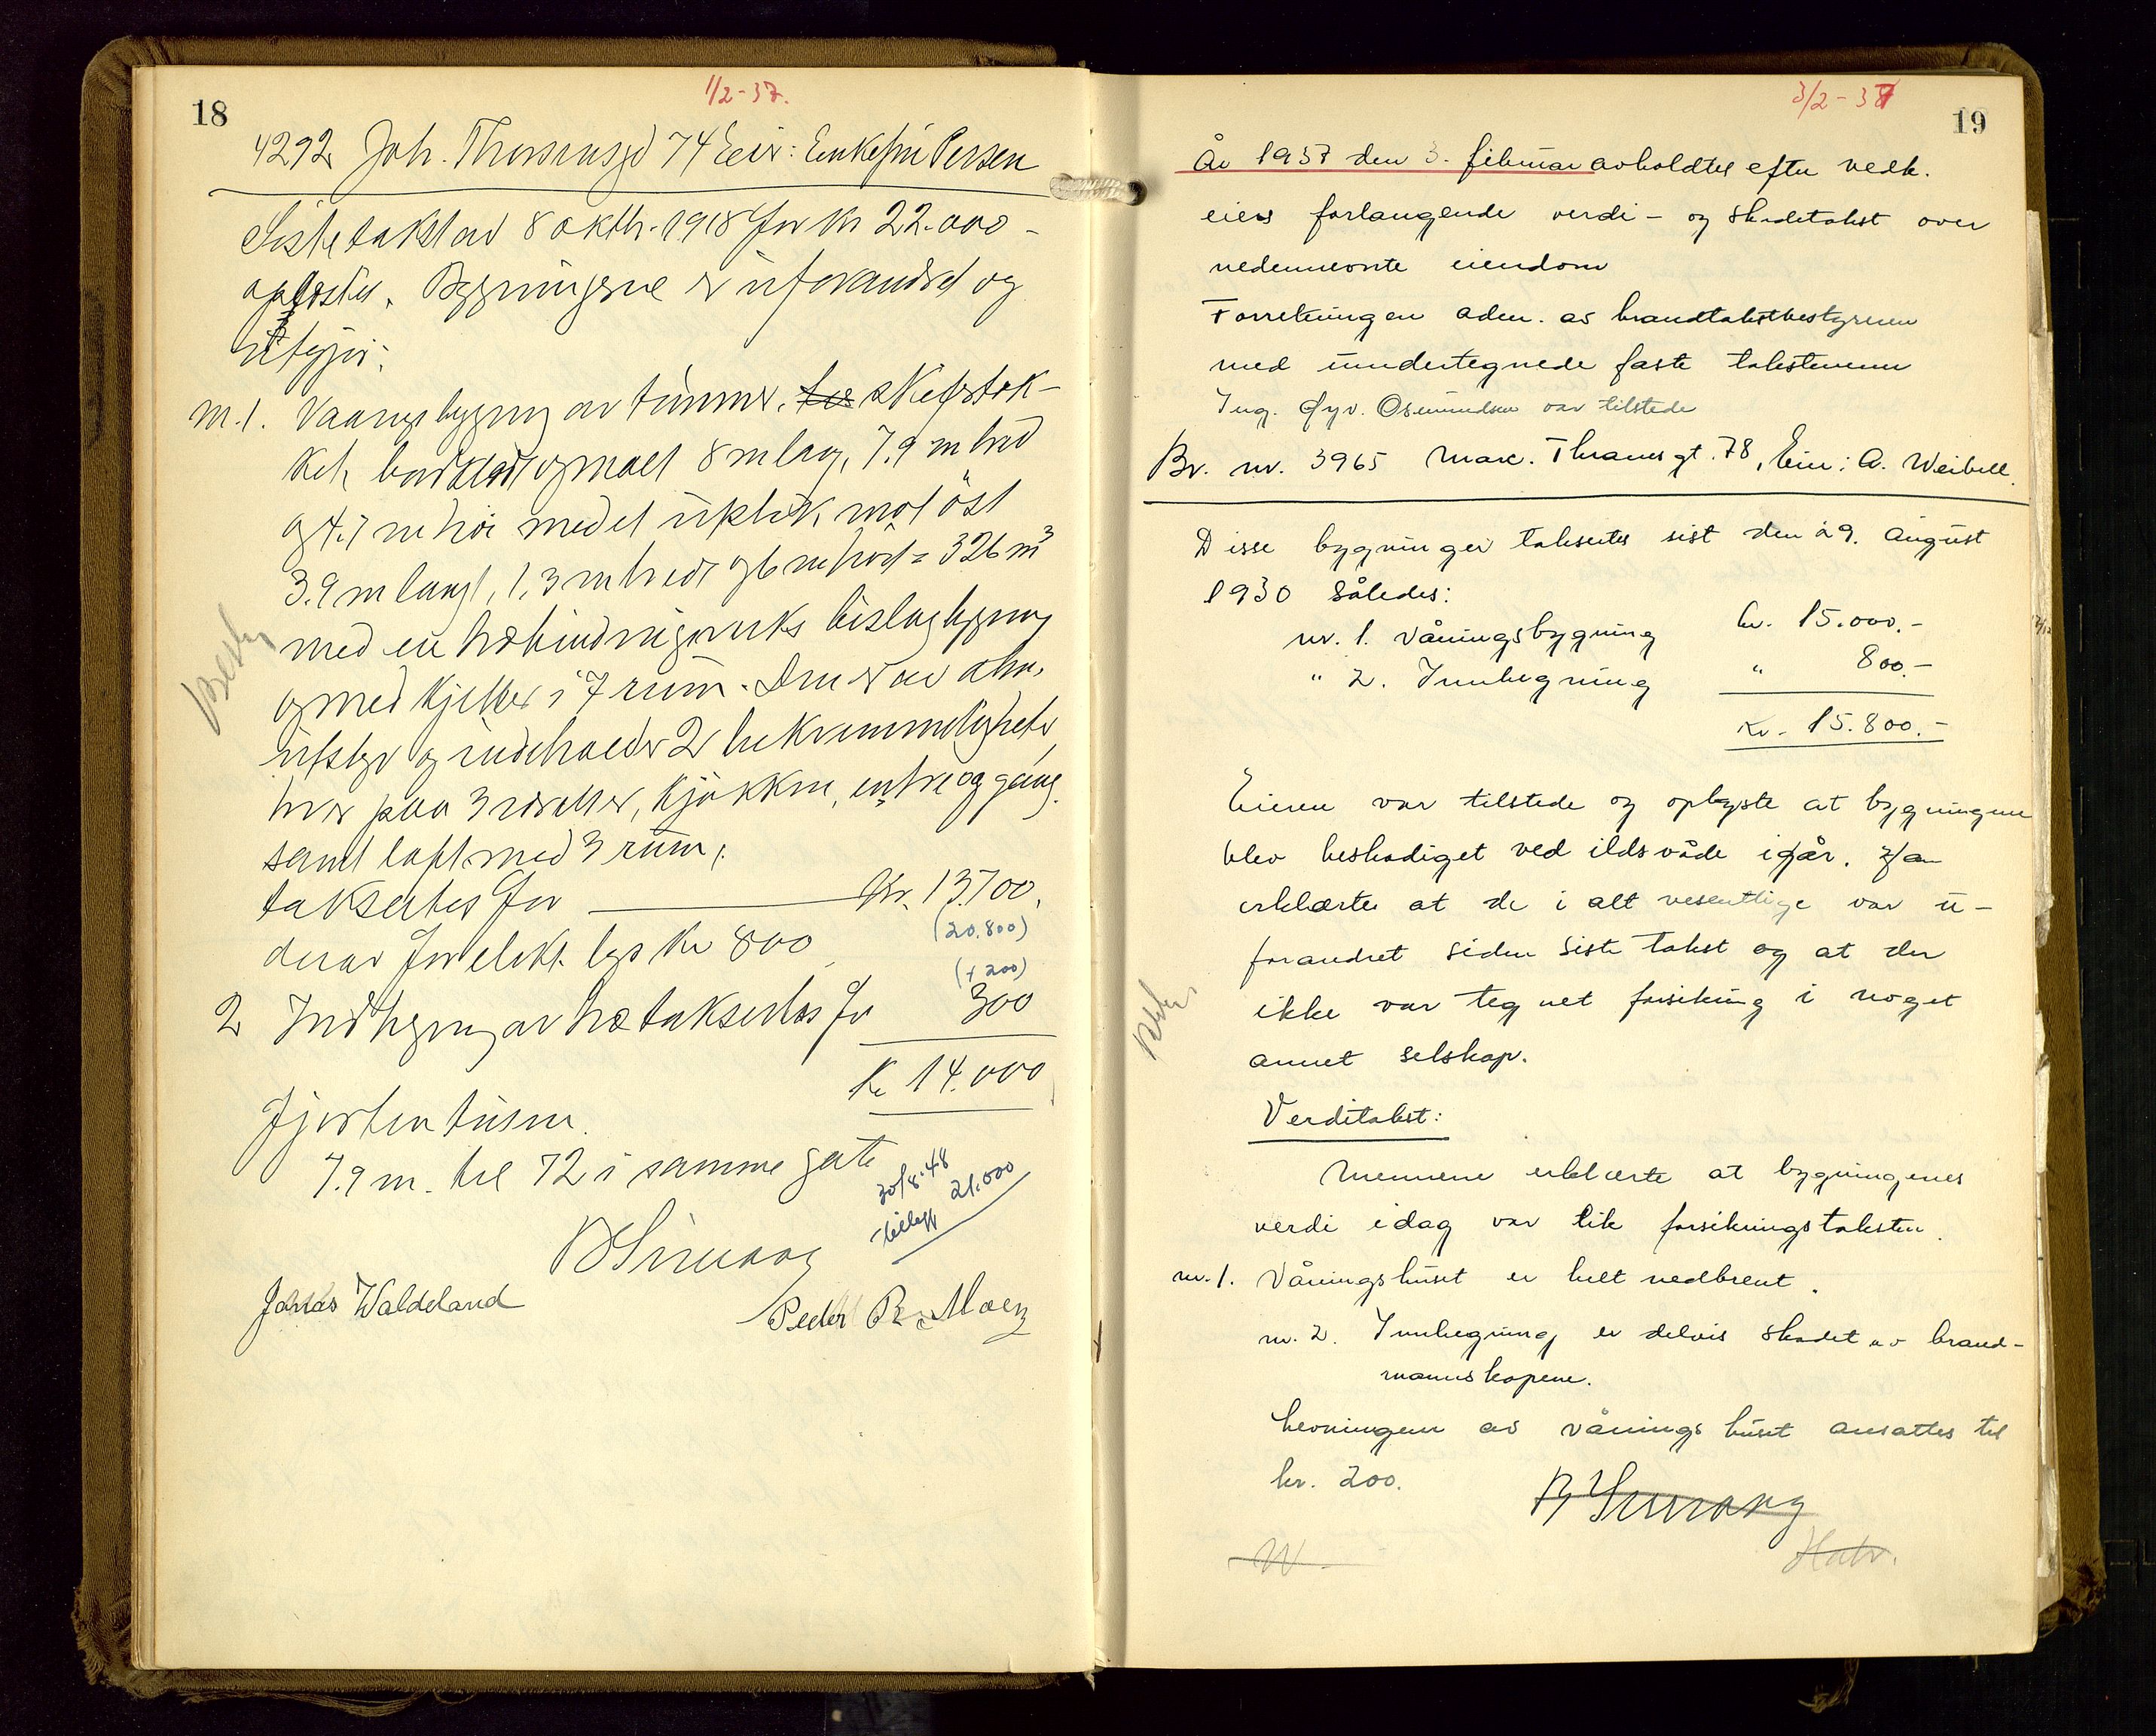 18
1/2-37.
4292 Joh. Thomsensgt 74 Eier: Enkefru Persen
Siste takst av 8 oktbr. 1918 for kr 22.000 -
oplestes. Bygningene er uforandret og
utgjør:
m.1. Vaaningsbygning av tømmer, skifertæk-
ket, bordklædt og malt 8 m lang, 7.9 m bred
og 4.7 m høi med et utstikk mot öst
3.9 m langt, 1.3 m bredt og 6 m høit = 326 m³
med en træbindingsverks bislagbygning
og med kjelder i 7 rum. Den er av alm.
utstyr og indeholder 2 bekvemmeligheter
hver paa 3 værelser, kjøkken, entre og gang.
samt loft med 3 rum,
taksertes for Kr. 13700.
(20.800)
derav for elekt. lys Kr 800
(+ 200)
2 Indhegning av træ taksertes for 300
Kr 14.000
Fjorten tusen.
7.9 m. til 72 i samme gate
30/8.48
tillegg 21.000
Jonas Waldeland
Peder R. Moen
3/2-37
19
År 1937 den 3. februar avholdtes efter vedk.
eiers forlangende verdi- og skadetakst over
nedennevnte eiendom
Forretningen adm. av brandtakstbestyreren
med undertegnede faste takstmenn
Ing. Øyv. Osmundsen var tilstede
Br. nr. 3965 Marc. Thranes gt. 78, Eier: A. Weibell.
Disse bygninger taksertes sist den 29. august
1930 således:
nr. 1. Våningsbygning kr. 15.000.-
" 2. Innhegning " 800.-
Kr. 15.800.-
Eieren var tilstede og oplyste at bygningene
blev beskadiget ved ildsvåde igår. Han
erklærte at de i alt vesentlige var u-
forandret siden siste takst og at der
ikke var tegnet forsikring i noget
annet selskap.
Verditakst:
Mennene erklærte at bygningenes
verdi idag var lik forsikringstaksten.
nr. 1. Våningshuset er helt nedbrent.
nr. 2. Innhegning er delvis skadet av brand-
mannskapene.
Levningene av våningshuset ansattes til
kr. 200.
W